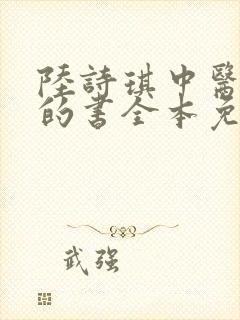 陸詩琪中醫
的書全本免
武强